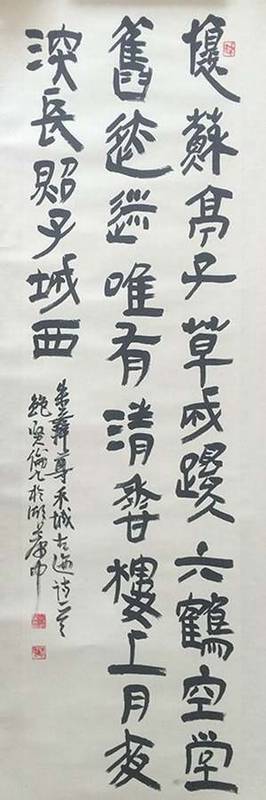 懷蘇亭子草成蹊六鶴空堂
舊迹迷唯有清香樓上月夜
深長照子城西
朱彝尊禾城古迹诗一首
鲍贤倫於湖上